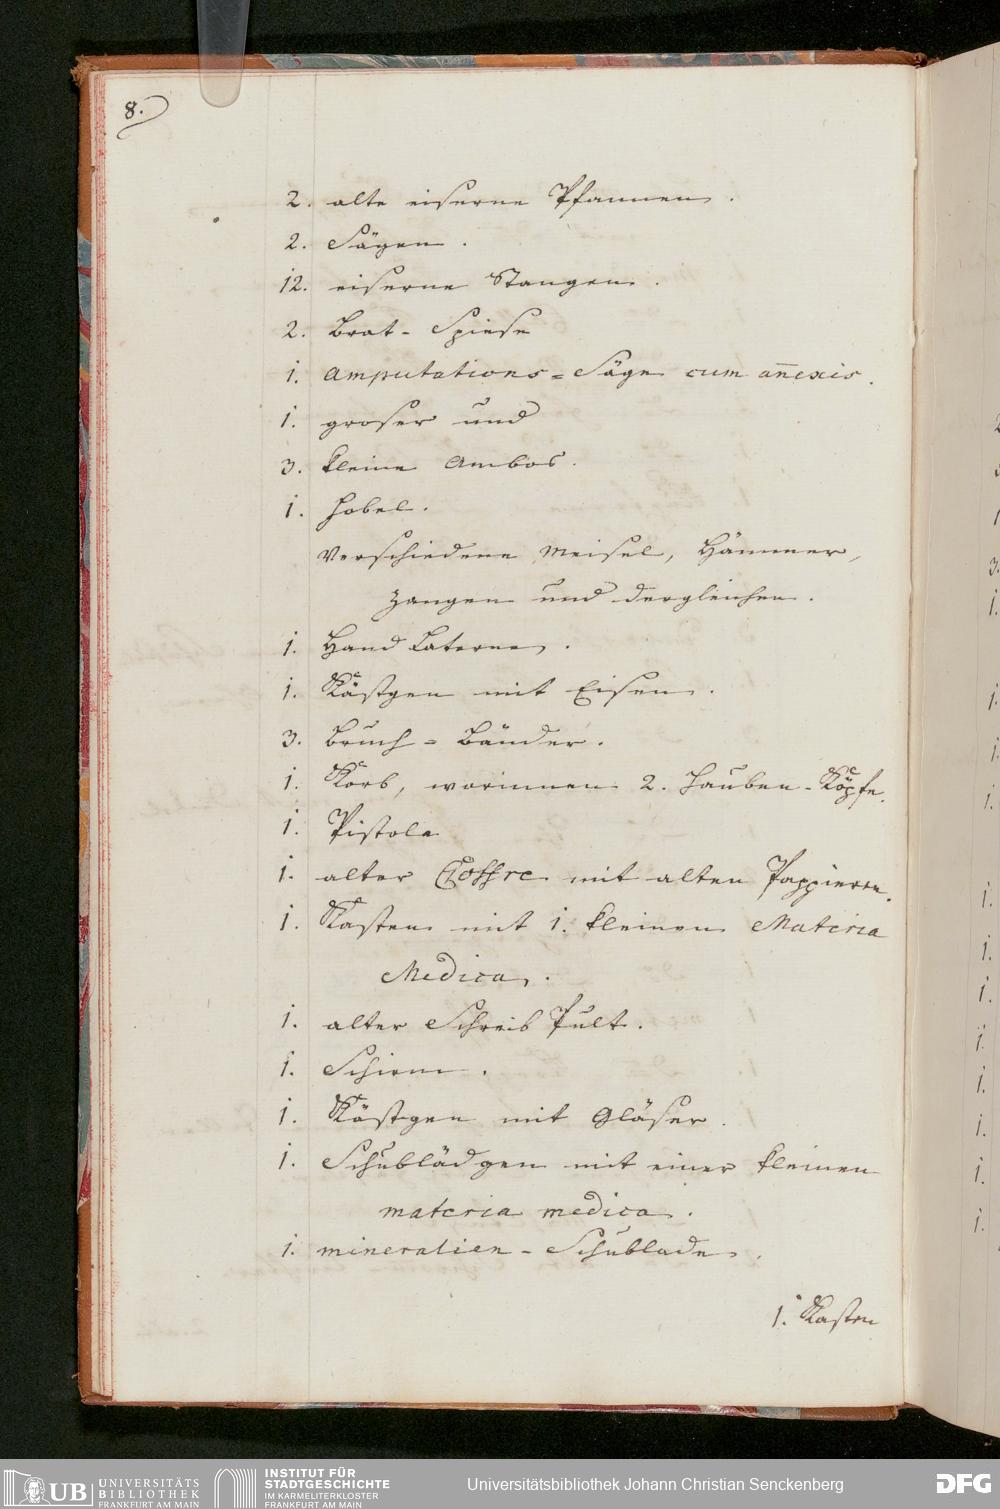 8.
2. alte eiserne Pfannen.
2. Sägen.
12. eiserne Stangen.
2. Brat-Spiese
1. Amputations-Säge cum an̄exis.
1. groser und
3. kleine Ambos.
1. Hobel.
Verschiedene Meisel, Hämmer,
Zangen und dergleichen.
1. Hand Laterne.
1. Kästgen mit Eisen.
3. Bruch-Bänder.
1. Korb, worinnen 2. Hauben-Köpfe.
1. Pistole
1. alter Coffre mit alten Pappieren.
1. Kasten mit 1. kleinen Materia
Medica.
1. alter Schreib Pult.
1. Schirm.
1. Kästgen mit Gläser.
1. Schublädgen mit einer kleinen
materia medica.
1. mineralien-Schublade.
1. Kasten
UB UNIVERSITÄTS
BIBLIOTHEK
FRANKFURT AM MAIN
INSTITUT FÜR
STADTGESCHICHTE
IM KARMELITERKLOSTER
FRANKFURT AM MAIN
Universitätsbibliothek Johann Christian Senckenberg
DFG